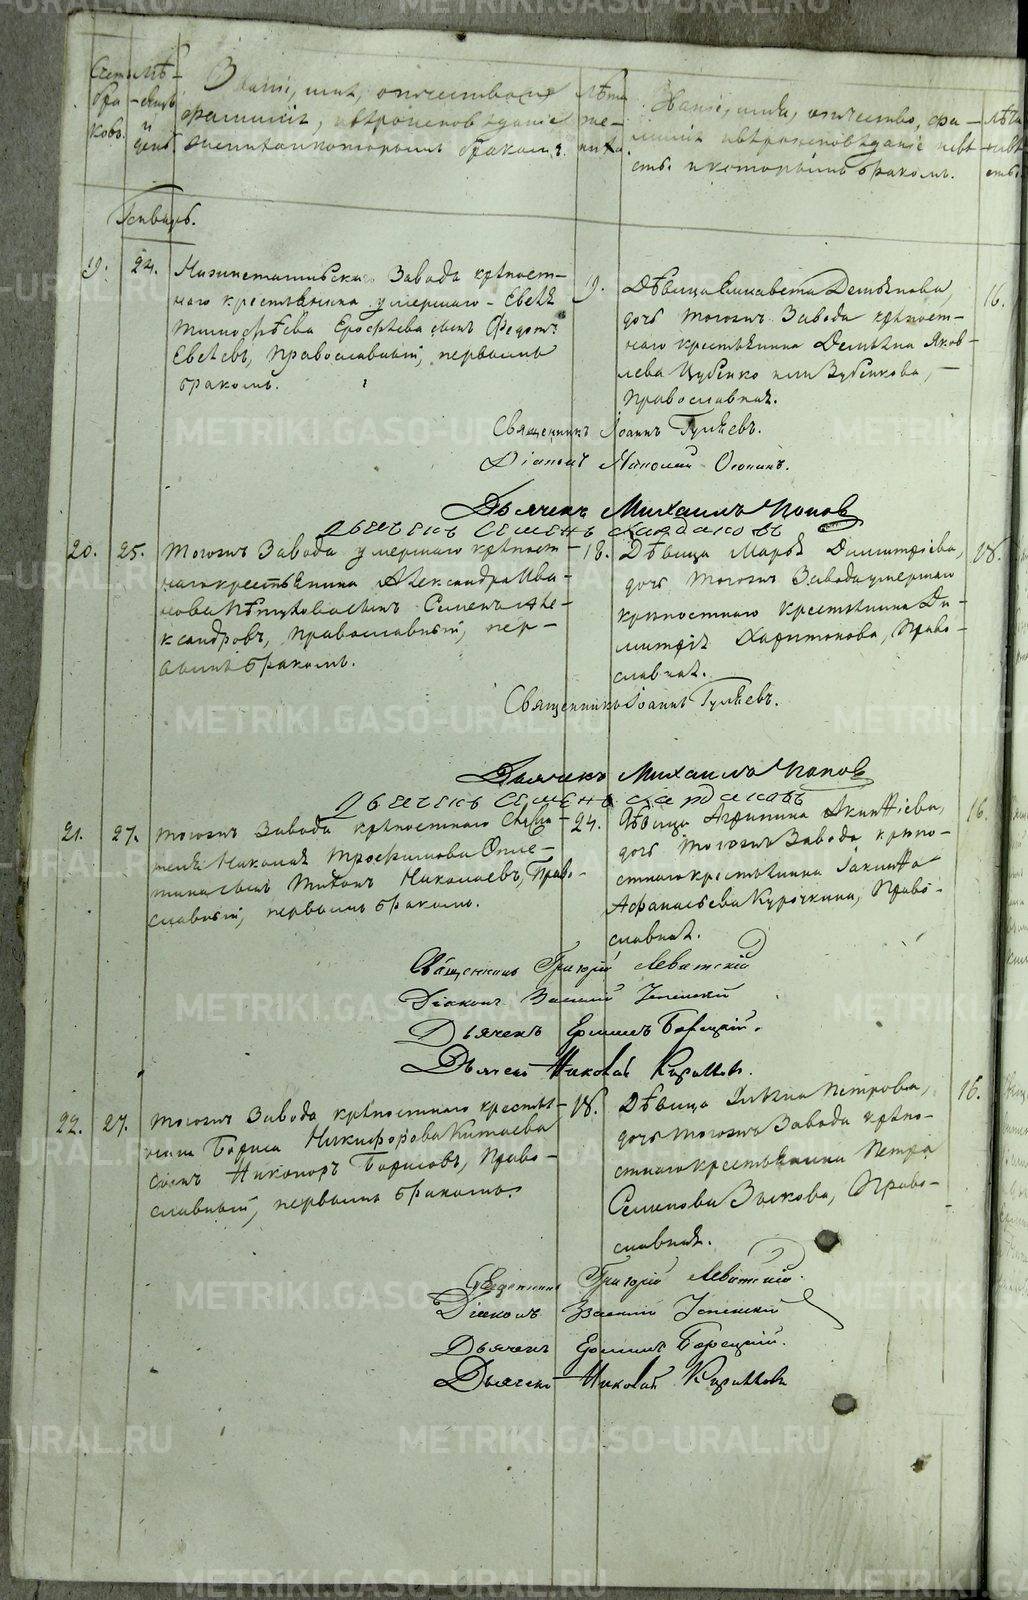 Счетъ браковъ.
Мѣсяцъ и день.
Званіе, имя, отчество,
фамилія, и вѣроисповѣданіе
жениха и которымъ бракомъ.
Лѣта жениха.
Званіе, имя, отчество, фа-
милія и вѣроисповѣданіе невѣ-
сты и которымъ бракомъ.
Лѣта невѣсты.
Генварь.
19. 24. Нижнетагильскаго Завода крѣпост-
наго крестьянина умершаго Евсѣя
Тимофѣева Ерофѣева сынъ Федотъ
Евсѣевъ, православный, первымъ
бракомъ.
19.
Дѣвица Елисавета Демьянова,
дочь тогожъ Завода крѣпост-
наго крестьянина Демьяна Яков-
лева Цубенко или Зубенкова,
православная.
16.
Священникъ Іоаннъ Гуляевъ.
Діаконъ
Дьячекъ Михаилъ Поповъ
Дьячекъ Семенъ Кандаковъ
20. 25. Тогожъ Завода умершаго крѣпост-
наго крестьянина Александра Ива-
нова Пѣтухова сынъ Семенъ Але-
ксандровъ, православный, пер-
вымъ бракомъ.
18.
Дѣвица Марья Димитріева,
дочь тогожъ Завода умершаго
крѣпостнаго крестьянина Ди-
митрія Харитонова, право-
славная.
18.
Священникъ Іоаннъ Гуляевъ.
Дьячекъ Михаилъ Поповъ
Дьячекъ Семенъ Кандаковъ
21. 27. Тогожъ Завода крѣпостнаго
Николая Трофимова
сынъ Тихонъ Николаевъ, право-
славный, первымъ бракомъ.
24.
Дѣвица Агрипина Акинѳіева,
дочь тогожъ Завода крѣпо-
стнаго крестьянина Іакинѳа
Афанасьева Курочкина, право-
славная.
16.
Священникъ Григорій Левитскій
Діаконъ Василій Успенскій
Дьячекъ Ермилъ Борецкій.
Дьячекъ Николай
22. 27. Тогожъ Завода крѣпостнаго крестья-
нина Бориса Никифорова Китаева
сынъ Никаноръ Борисовъ, право-
славный, первымъ бракомъ.
18.
Дѣвица Ульяна Петрова,
дочь тогожъ Завода крѣпо-
стнаго крестьянина Петра
Семенова Зыкова, право-
славная.
16.
Священникъ Григорій Левитскій.
Діаконъ Василій Успенскій
Дьячекъ Ермилъ Борецкій.
Дьячекъ Николай
METRIKI.GASO-URAL.RU